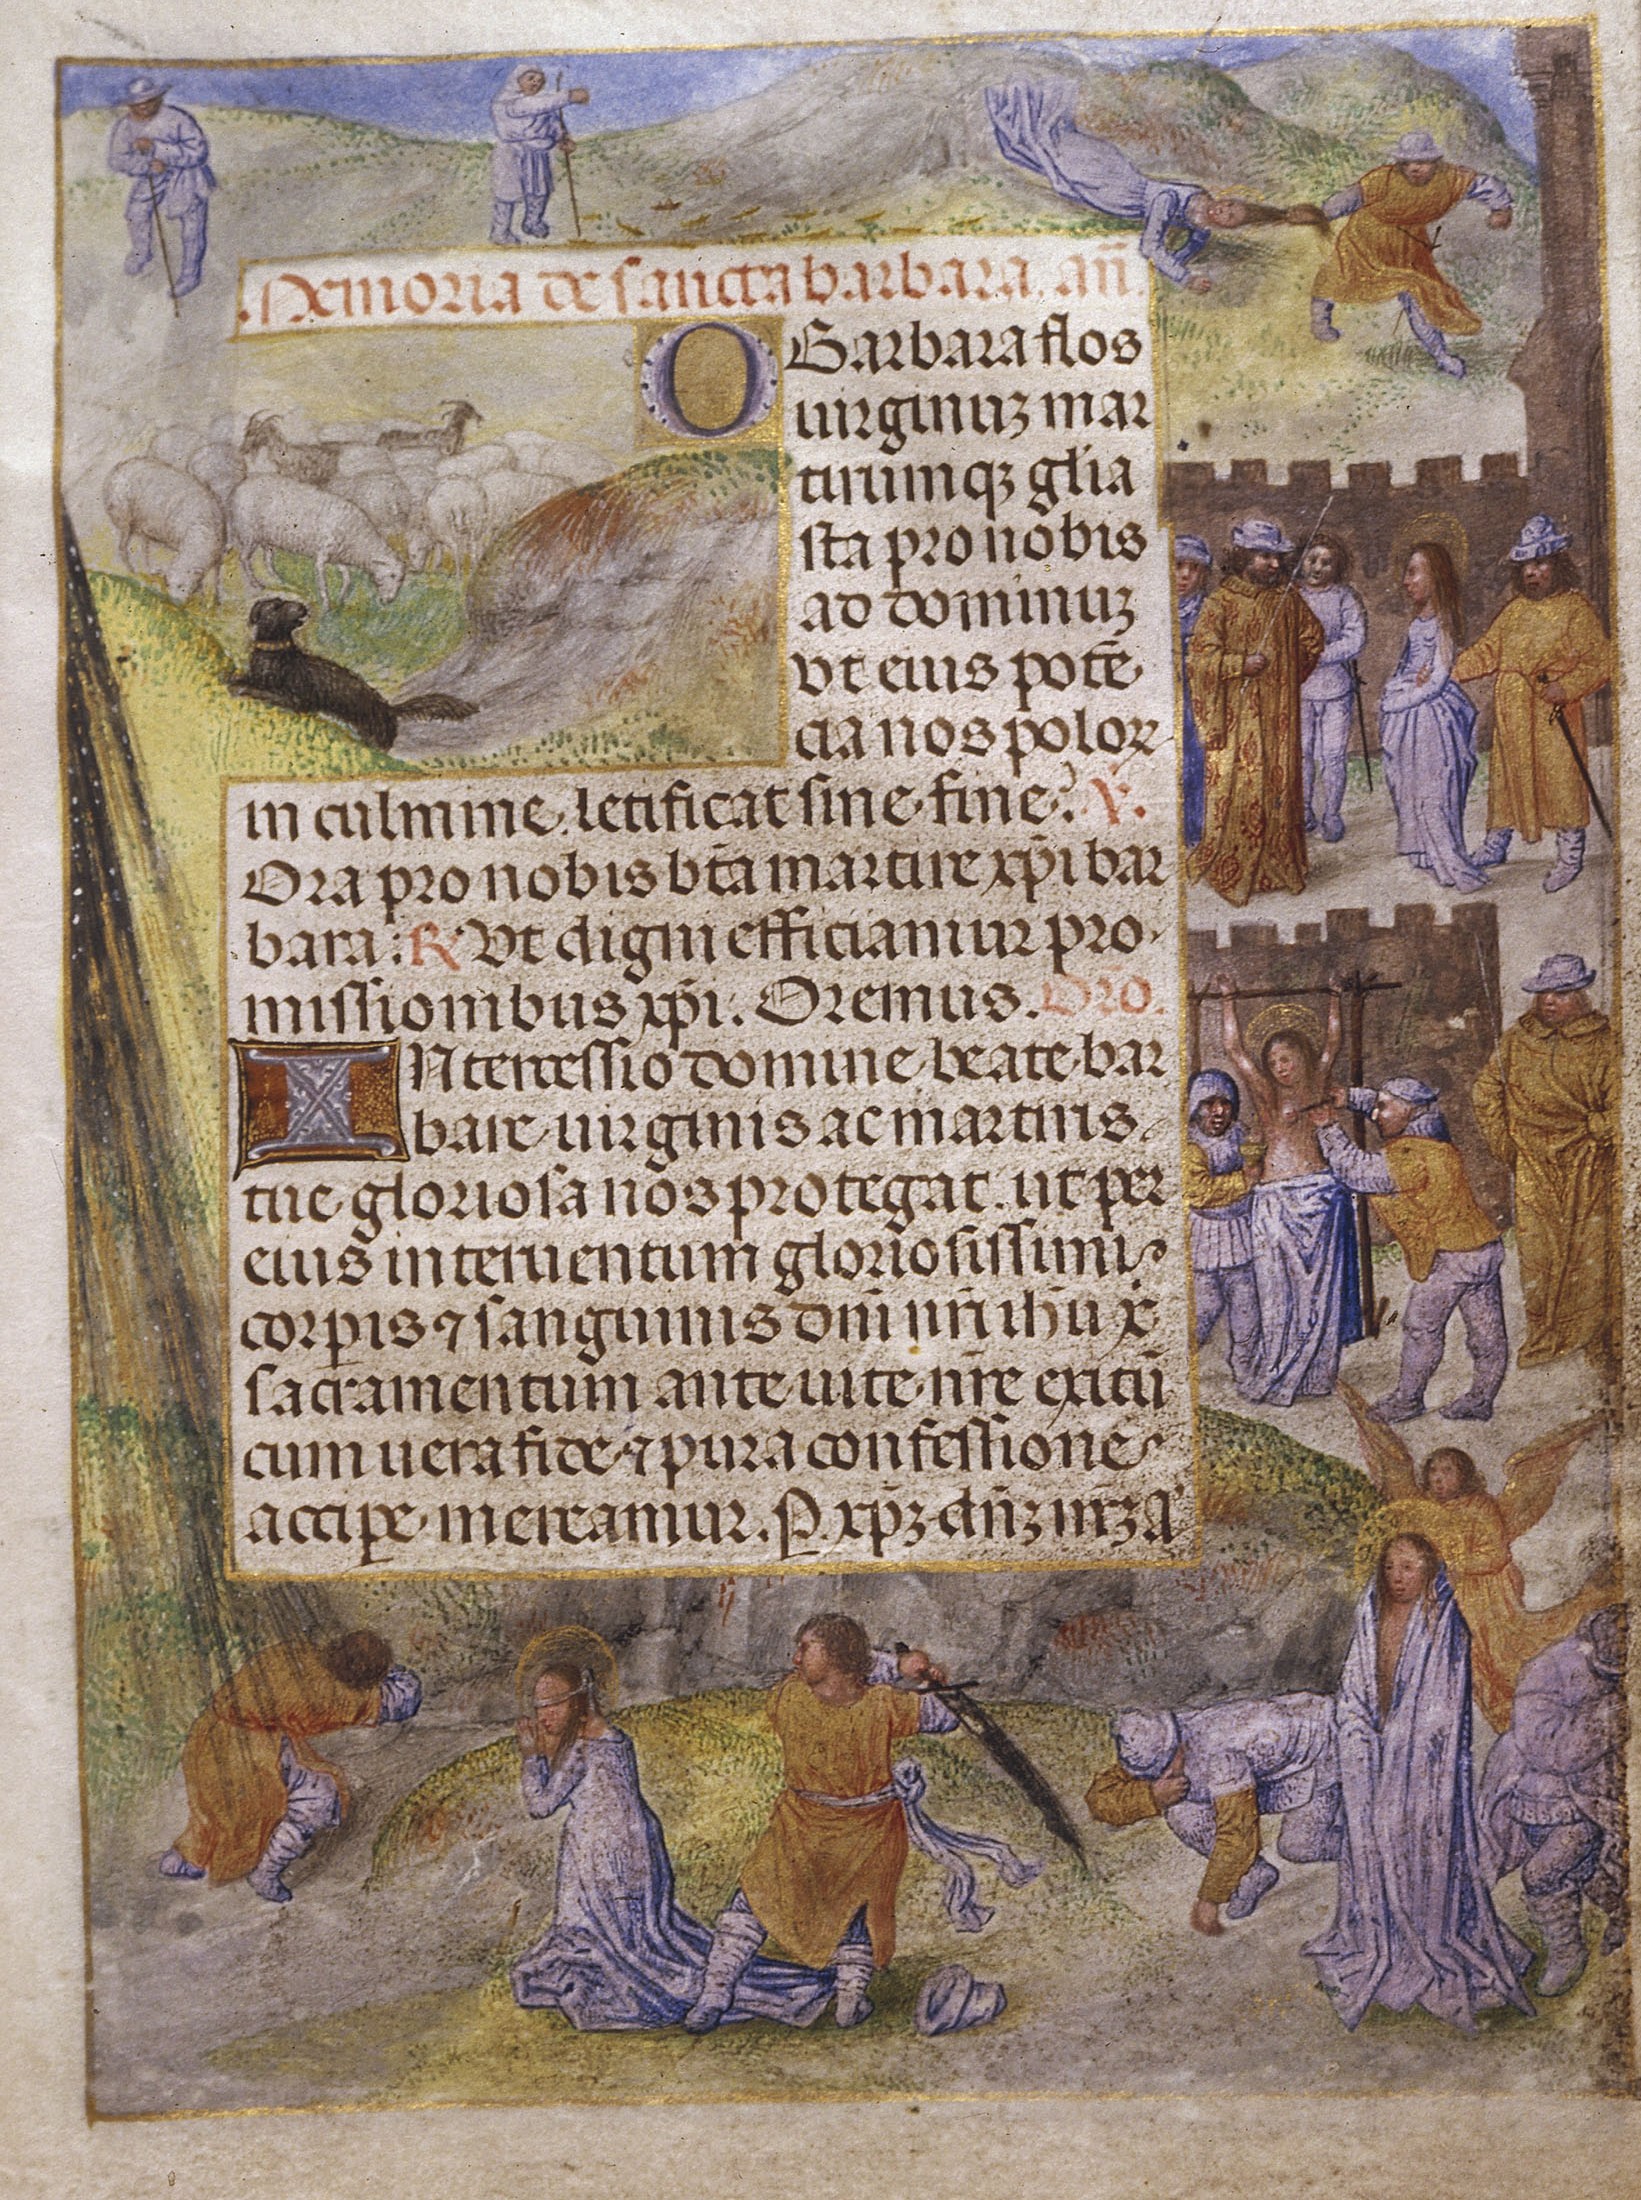 Memoria de sancta barbara. an̄.
O Barbara flos
uirginuꝫ mar
tirumqꝫ gl̄ia
sta pro nobis
ad dominuꝫ
vt eius potē
cia nos poloꝝ
in culmine letificat sine fine. ℣.
Ora pro nobis bt̄a martire xp̄i bar
bara: ℟ Vt digni efficiamur pro
missionibus xp̄i: Oremus. Or̄o.
INtercessio domine beate bar
bare uirginis ac martiris
tue gloriosa nos protegat. ut per
eius interuentum gloriosissimi
corpis ⁊ sanguinis dn̄i nr̄i ih̄u x̄
sacramentum ante uite nr̄e exitū
cum uera fide ⁊ pura confessione
accipe mereamur. P. xp̄ꝫ dn̄ꝫ nr̄ꝫ A